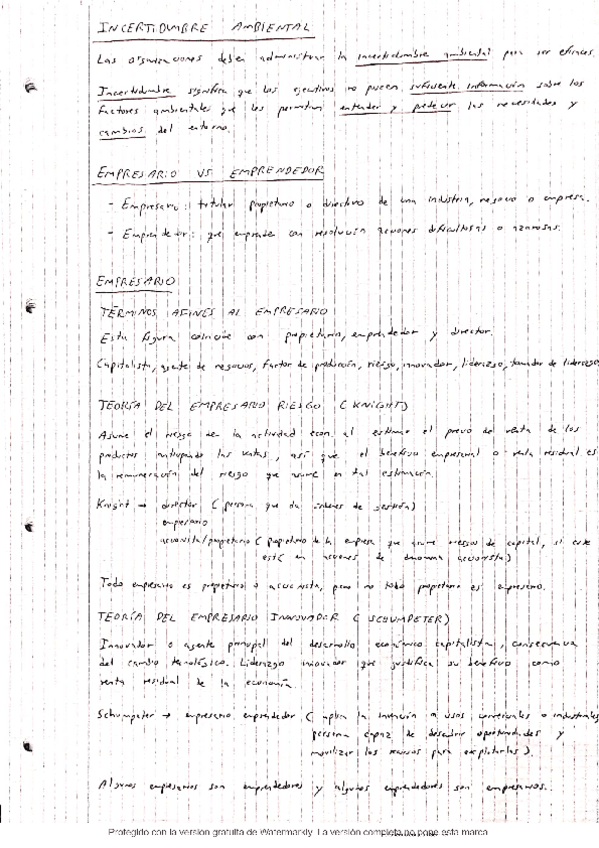 INCERTIDUMBRE AMBIENTAL
Las organizaciones deben administrar la incertidumbre ambiental para ser eficaces.
Incertidumbre significa que los ejecutivos no poseen suficiente información sobre los
factores ambientales que les permitan entender y predecir las necesidades y
cambios del entorno.
EMPRESARIO VS EMPRENDEDOR
- Empresario: titular propietario o directivo de una industria, negocio o empresa.
- Emprendedor: que emprende con resolución acciones dificultosas o azarosas.
EMPRESARIO
TÉRMINOS AFINES AL EMPRESARIO
Esta figura coincide con propietario, emprendedor y director.
Capitalista, agente de negocios, factor de producción, riesgo, innovador, liderazgo, tomador de liderazgo
TEORÍA DEL EMPRESARIO RIESGO (KNIGHT)
Asume el riesgo de la actividad econ. al estimar el precio de venta de los
productos anticipando las ventas, así que el beneficio empresarial o renta residual es
la remuneración del riesgo que asume en tal estimación.
Knight → director (persona que da órdenes de gestión)
empresario
accionista/propietario (propietario de la empresa que asume riesgos de capital, si este
está en acciones se denomina accionista)
Todo empresario es propietario o accionista, pero no todo propietario es empresario.
TEORÍA DEL EMPRESARIO INNOVADOR (SCHUMPETER)
Innovador o agente principal del desarrollo económico capitalista, consecuencia
del cambio tecnológico. Liderazgo innovador que justifica su beneficio como
renta residual de la economía.
Schumpeter → empresario emprendedor (aplica la invención a usos comerciales o industriales,
persona capaz de descubrir oportunidades y
movilizar los recursos para explotarlas).
Algunos empresarios son emprendedores y algunos emprendedores son empresarios.
Protegido con la versión gratuita de Watermarkly. La versión completa no pone esta marca.